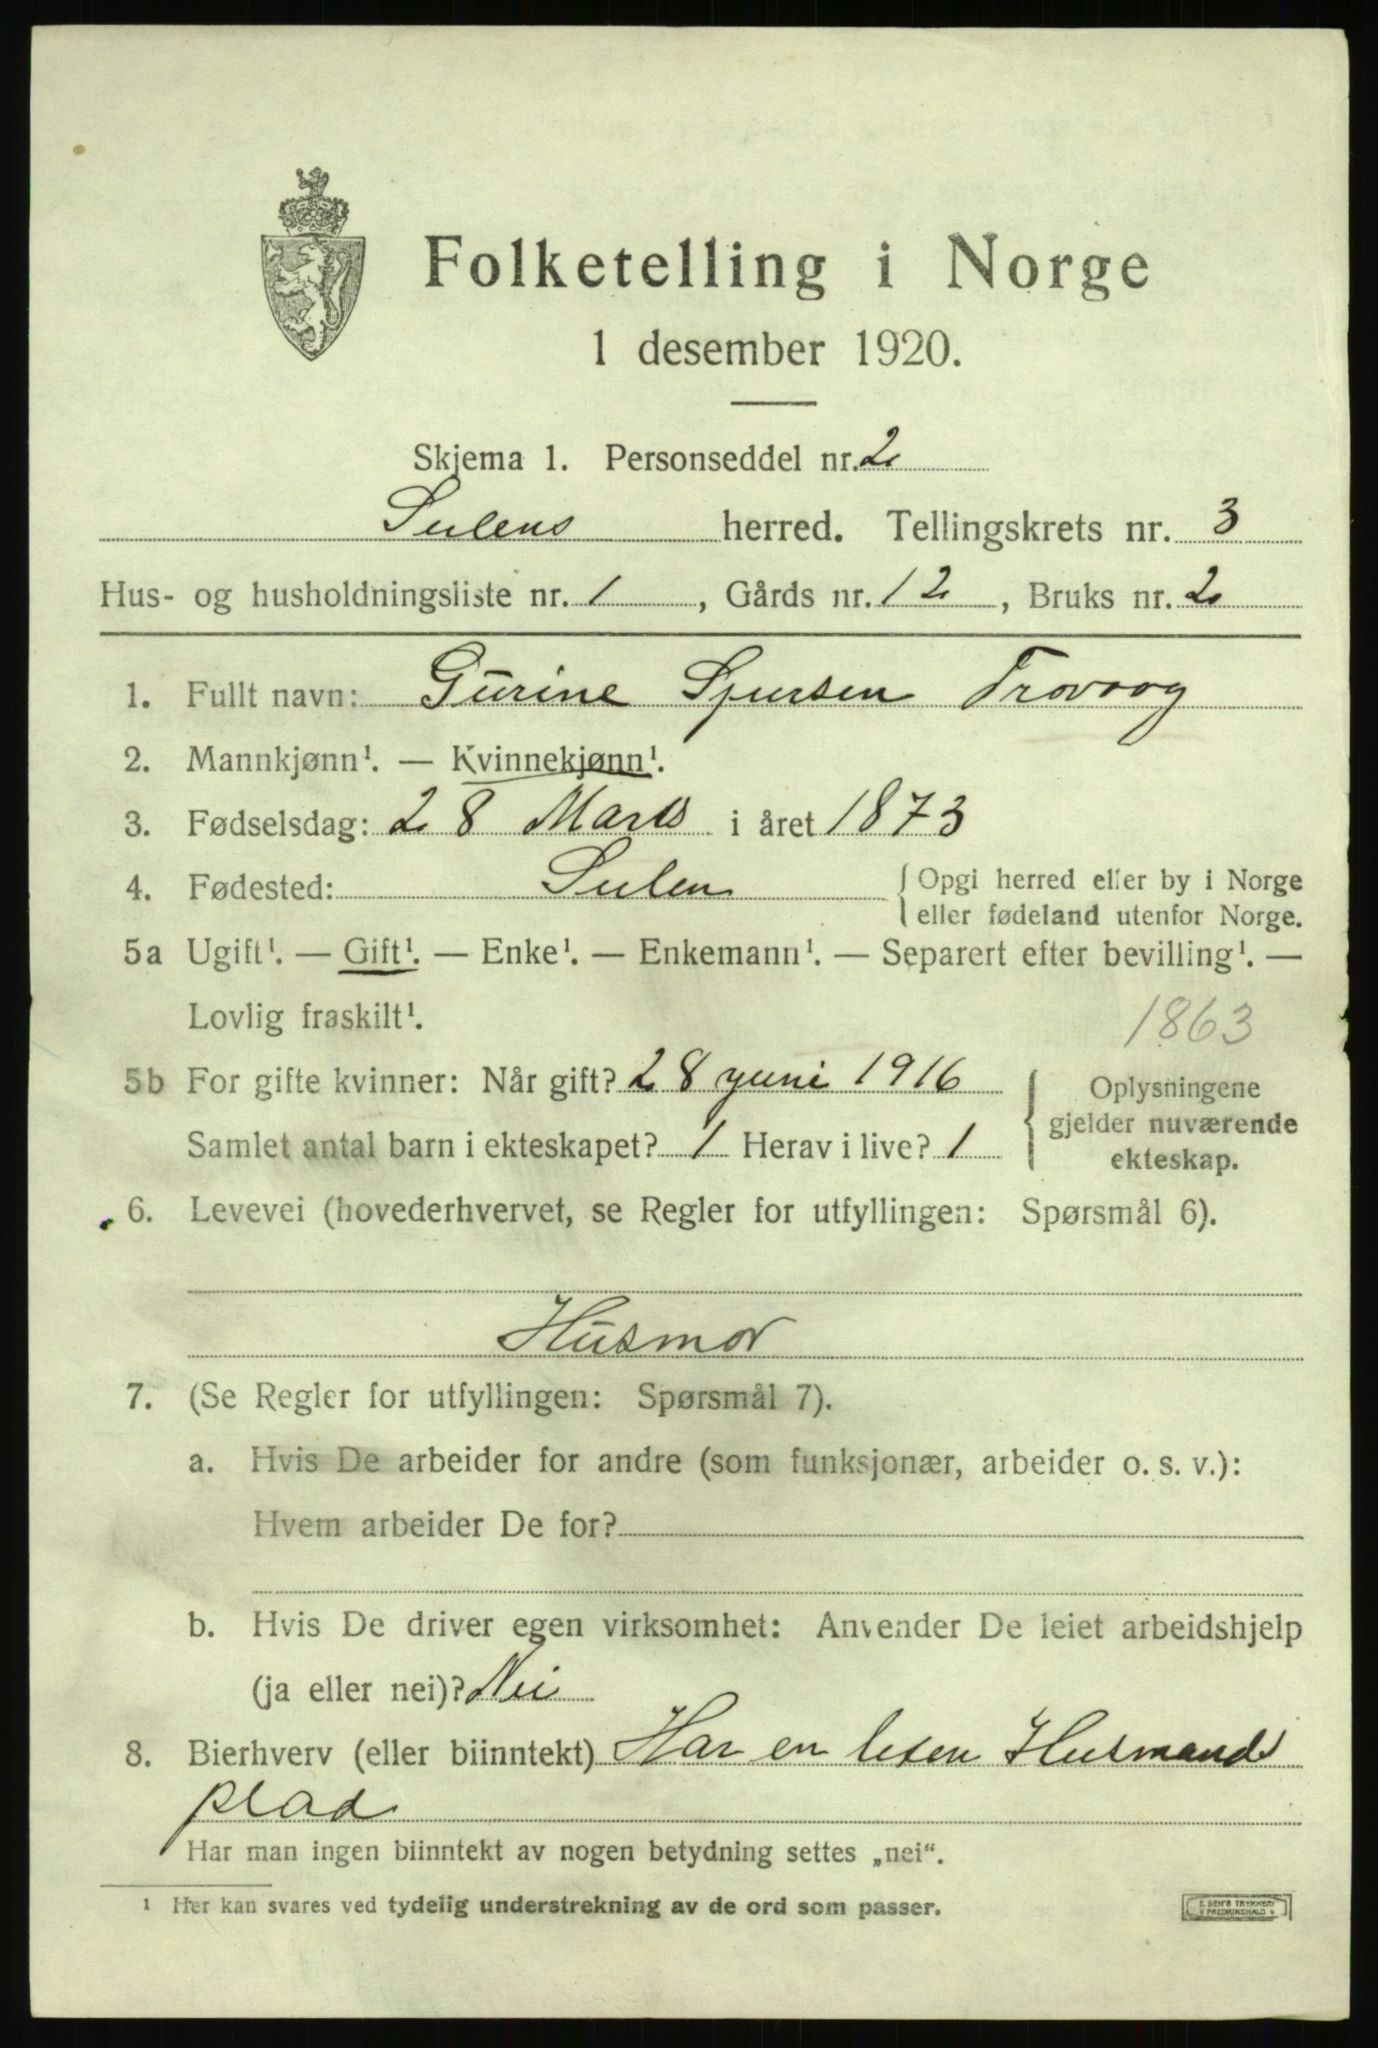 Folketelling i Norge
1 desember 1920.
Skjema 1. Personseddel nr. 2
Sulens herred. Tellingskrets nr. 3
Hus- og husholdningsliste nr. 1, Gårds nr. 12, Bruks nr. 2
1. Fullt navn: Gurine Sjursen Trovaag
2. Mannkjønn¹. — Kvinnekjønn¹.
3. Fødselsdag: 28 Marts i året 1873
4. Fødested: Sulen { Opgi herred eller by i Norge
eller fødeland utenfor Norge.
5a Ugift¹. — Gift¹. — Enke¹. — Enkemann¹. — Separert efter bevilling¹. —
Lovlig fraskilt¹.
1863
5b For gifte kvinner: Når gift? 28 juni 1916
Samlet antal barn i ekteskapet? 1 Herav i live? 1
{ Oplysningene
gjelder nuværende
ekteskap.
6. Levevei (hovederhvervet, se Regler for utfyllingen: Spørsmål 6).
Husmor
7. (Se Regler for utfyllingen: Spørsmål 7).
a. Hvis De arbeider for andre (som funksjonær, arbeider o. s. v.):
Hvem arbeider De for?
b. Hvis De driver egen virksomhet: Anvender De leiet arbeidshjelp
(ja eller nei)? Nei
8. Bierhverv (eller biinntekt) Har en liten Husmands
plads
Har man ingen biinntekt av nogen betydning settes „nei“.
¹ Her kan svares ved tydelig understrekning av de ord som passer.